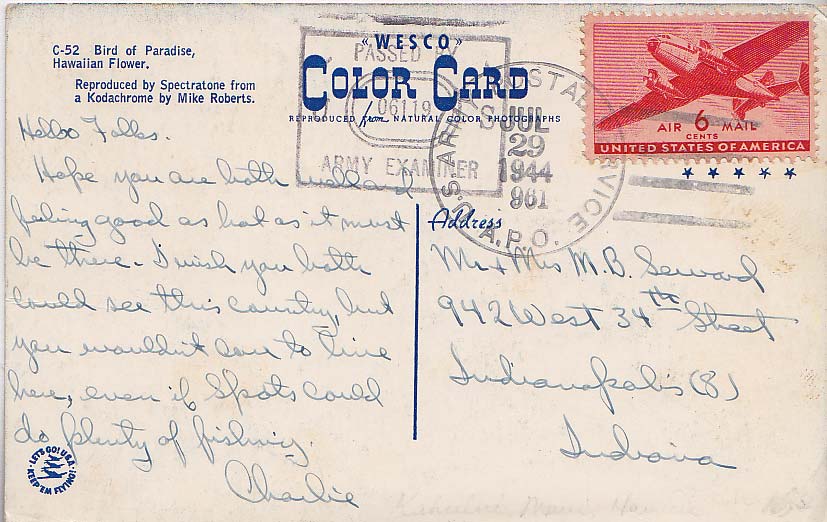 C-52 Bird of Paradise,
Hawaiian Flower.
Reproduced by Spectratone from
a Kodachrome by Mike Roberts.
"WESCO"
COLOR CARD
REPRODUCED from NATURAL COLOR PHOTOGRAPHS
PASSED BY
06119
ARMY EXAMINER
U.S. ARMY POSTAL SERVICE
A.P.O.
JUL
29
1944
961
AIR 6 MAIL
CENTS
UNITED STATES OF AMERICA
Hello Folks.
Hope you are both well and
feeling good as hot as it must
be there. I wish you both
could see this country, but
you wouldn't care to live
here, even if Spots could
do plenty of fishing.
Charlie
Address
Mr + Mrs M.B. Seward
942 West 34th Street
Indianapolis (8)
Indiana
LET'S GO! U.S.A.
KEEP 'EM FLYING!